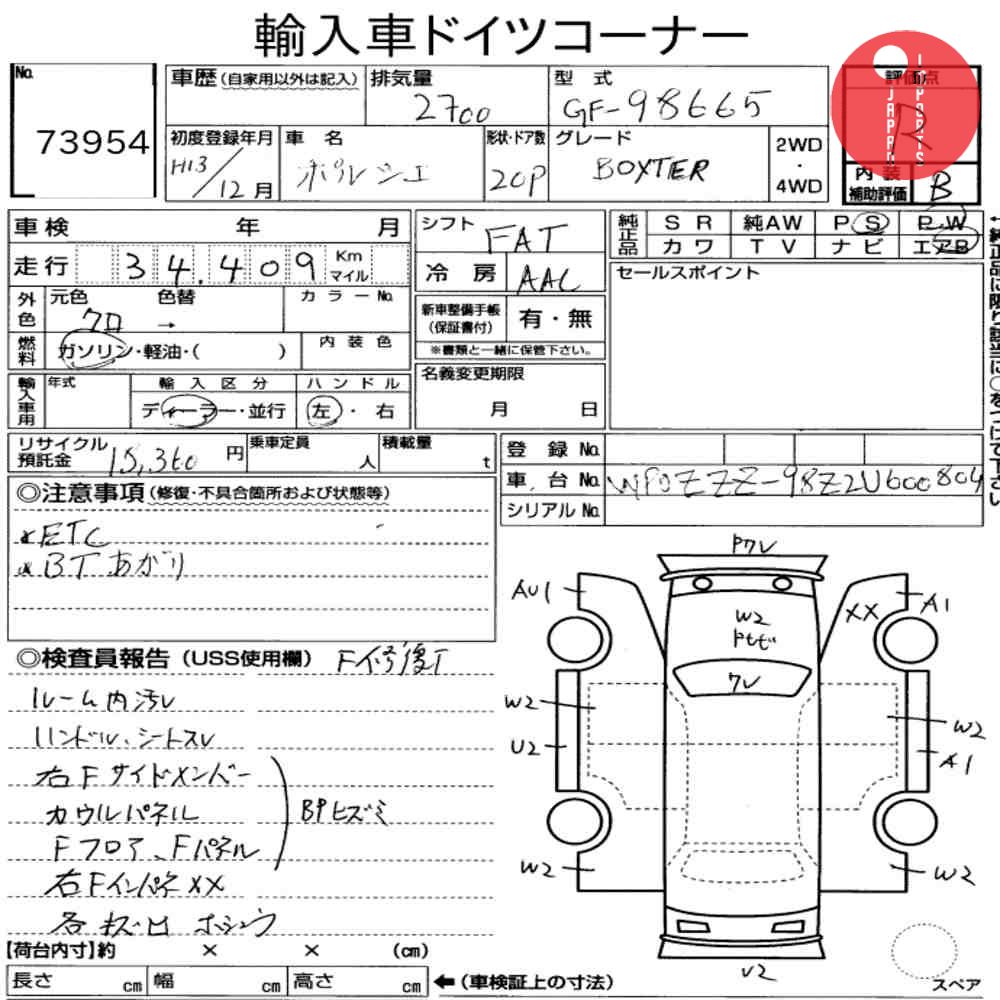 輸入車ドイツコーナー
No.
73954
車歴(自家用以外は記入)
排気量
2700
型 式
GF-98665
評価点
R
JAPAN IMPORTS
初度登録年月
H13/12月
車 名
ポルシェ
形状・ドア数
2CP
グレード
BOXTER
2WD
・
4WD
内 装
補助評価
B
車検 年 月
走行 34,409 Km マイル
外色
元色
クロ
色替
→
カラーNo.
燃料
ガソリン・軽油・( )
内装色
輸入車用
年式
輸入区分
ディーラー・並行
ハンドル
左・右
シフト
FAT
冷 房
AAC
新車整備手帳
(保証書付)
有・無
※書類と一緒に保管下さい。
名義変更期限
月 日
純正品
SR 純AW PS PW
カワ TV ナビ エアB
セールスポイント
←純正品に限り該当に○をつけて下さい
リサイクル
預託金
15,360円
乗車定員
人
積載量
t
登 録 No.
車 台 No. WP0ZZZ-98Z2U600804
シリアルNo.
◎注意事項(修復・不具合箇所および状態等)
*ETC
*BTあがり
◎検査員報告(USS使用欄) F修復T
ルーム内汚レ
ハンドル、シートスレ
右Fサイドメンバー
カウルパネル
Fフロア、Fパネル
BPヒズミ
右Fインパネ XX
各キズ凹 ホシュウ
Pワレ
AU1
A1
XX
W2
トビ
ワレ
W2
W2
U2
A1
W2
W2
U2
スペア
【荷台内寸】約 × × (cm)
長さ cm 幅 cm 高さ cm ←(車検証上の寸法)